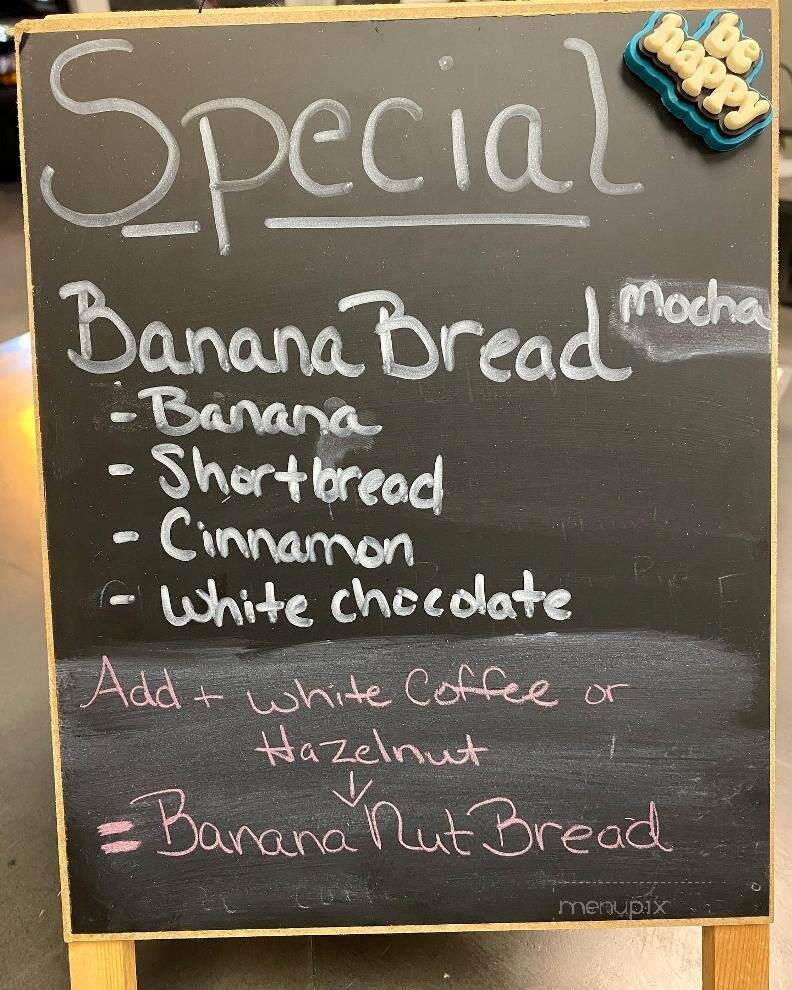 be
happy
Special
Banana Bread Mocha
- Banana
- Shortbread
- Cinnamon
- White chocolate
Add + white Coffee or
Hazelnut
= Banana Nut Bread
menupix